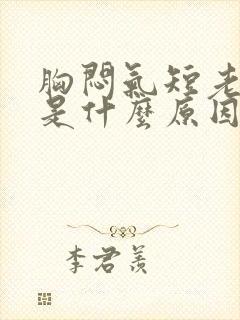 胸悶氣短老
是什麼原因
李君羨